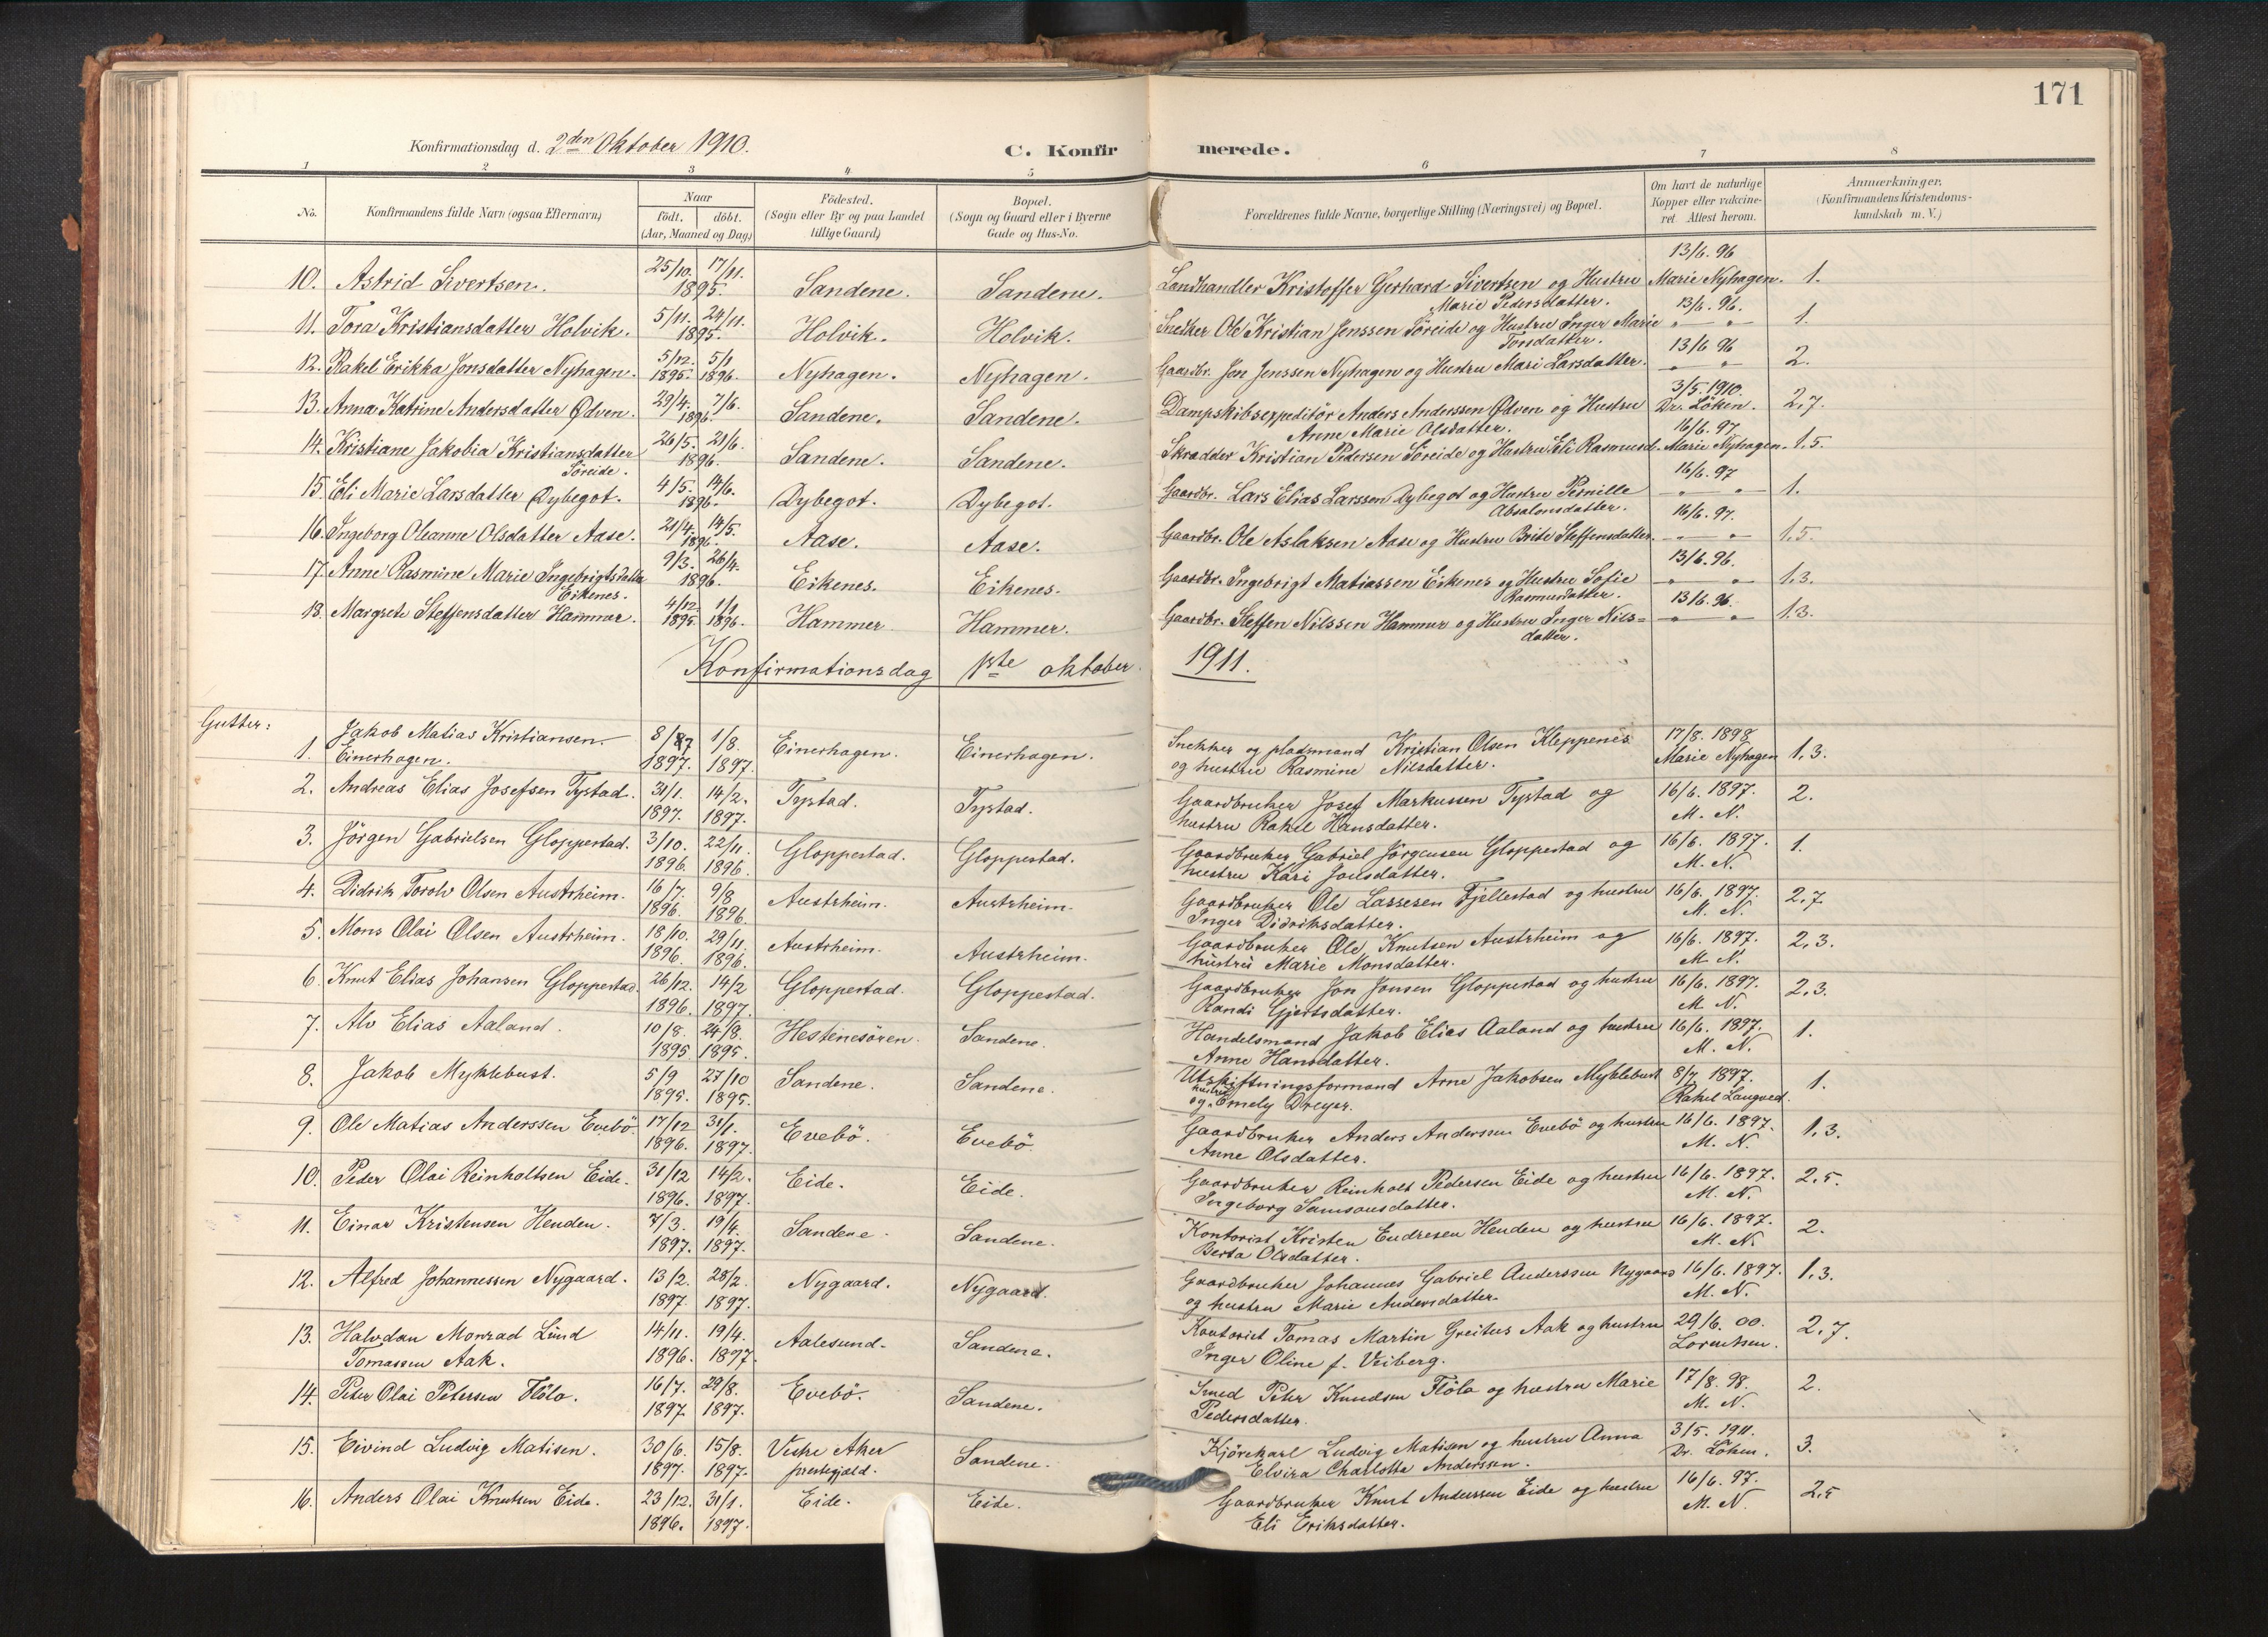 171
Konfirmationsdag d. 2den Oktober 1910.
C. Konfirmerede.
1 2 3 4 5 6 7 8
No.
Konfirmandens fulde Navn (ogsaa Efternavn)
Naar
födt. döbt.
(Aar, Maaned og Dag)
Födested.
(Sogn eller By og paa Landet
tillige Gaard)
Bopæl.
(Sogn og Gaard eller i Byerne
Gade og Hus-No.
Forældrenes fulde Navne, borgerlige Stilling (Næringsvei) og Bopæl.
Om havt de naturlige
Kopper eller vakcine-
ret. Attest herom.
Anmærkninger.
(Konfirmandens Kristendoms-
kundskab m. V.)
10. Astrid Sivertsen. 25/10. 17/11. 1895. Sandene. Sandene. Landhandler Kristoffer Gerhard Sivertsen og Hustru 13/6. 96 Marie Nyhagen. 1.
Marie Pedersdatter.
11. Tora Kristiansdatter Holvik. 5/11. 24/11. 1895. Holvik. Holvik. Snedker Ole Kristian Jenssen Söreide og Hustru Inger Marie 13/6. 96. „ — „ 1.
Tonsdatter.
12. Rakel Erikka Jonsdatter Nyhagen. 5/12. 1895. 5/1 1896. Nyhagen. Nyhagen. Gaardbr. Jon Jenssen Nyhagen og Hustru Mari Larsdatter. 13/6 96 „ „ 2.
13. Anna Katrine Andersdatter Ödven. 29/4. 7/6. 1896. Sandene. Sandene. Dampskibsexpeditör Anders Anderssen Ödven og Hustru 3/5. 1910. Dr. Löken. 2,7.
Anne Marie Olsdatter.
14. Kristiane Jakobia Kristiansdatter 26/5. 21/6. 1896. Sandene. Sandene. Skrædder Kristian Pedersen Söreide og Hustru Eli Rasmusd. 16/6. 97. Marie Nyhagen. 1.5
Söreide.
15. Eli Marie Larsdatter Dybegot. 4/5. 14/6. 1896. Dybegot. Dybegot. Gaardbr. Lars Elias Larssen Dybegot og Hustru Pernille 16/6. 97 — „ — „ 1.
Absalonsdatter.
16. Ingeborg Oleanne Olsdatter Aase. 21/4. 14/5. 1896. Aase. Aase. Gaardbr. Ole Aslaksen Aase og Hustru Brite Steffensdatter. 16/6. 97. — „ — „ 1.5.
17. Anne Rasmine Marie Ingebrigtsdatter 9/3. 26/4. 1896. Eikenes. Eikenes. Gaardbr. Ingebrigt Matiassen Eikenes og Hustru Sofie 13/6. 96. — „ „ 1.3.
Eikenes. Rasmusdatter.
18. Margrete Steffensdatter Hammer. 4/12. 1895. 1/1 1896. Hammer Hammer. Gaardbr. Steffen Nilssen Hammer og Hustru Inger Nils= 13/6. 96. — „ — „ 1.3.
datter.
Konfirmationsdag 1ste oktober 1911.
Gutter:
1. Jakob Matias Kristiansen 1/8. 1897. 1897. Einerhagen. Einerhagen. Snekker og pladsmand Kristian Olsen Kleppenes 17/8. 1898 1,3.
Einerhagen. og hustru Rasmine Nilsdatter. Marie Nyhagen
2. Andreas Elias Josefsen Tystad. 31/1. 1897. 14/2. 1897. Tystad. Tystad. Gaardbruker Josef Markussen Tystad og 16/6. 1897. 2.
hustru Rakel Hansdatter. M. N.
3. Jörgen Gabrielsen Gloppestad. 3/10. 1896 22/11. 1896. Gloppestad. Gloppestad. Gaardbruker Gabriel Jörgensen Gloppestad og 16/6. 1897. 1.
hustru Kari Jonsdatter. M. N.
4. Didrik Torolv Olsen Austrheim. 16/7. 1896. 9/8 1896. Austrheim. Austrheim. Gaardbruker Ole Lassesen Fjellestad og hustru 16/6. 1897. 2,7.
Inger Didriksdatter. M. N.
5. Mons Olai Olsen Austrheim. 18/10. 1896. 29/11. 1896. Austrheim. Austrheim. Gaardbruker Ole Knutsen Austrheim og 16/6. 1897. 2,3.
hustru Marie Monsdatter. M. N.
6. Knut Elias Johansen Gloppestad. 26/12. 1896. 14/2 1897. Gloppestad. Gloppestad. Gaardbruker Jon Jonsen Gloppestad og hustru 16/6. 1897. 2,3.
Randi Gjertsdatter. M. N.
7. Alv Elias Aaland. 10/8. 1895 24/8. 1895. Hestenesören. Sandene. Handelsmand Jakob Elias Aaland og hustru 16/6. 1897. 1.
Anne Hansdatter. M. N.
8. Jakob Myklebust. 5/9 1895. 27/10 1895. Sandene. Sandene. Utskiftningsformand Arne Jakobsen Myklebust 8/7 1897. 1.
og hustru Emely Dreyer. Rakel Langved.
9. Ole Matias Anderssen Evebö. 17/12 1896. 31/1. 1897. Evebö. Evebö. Gaardbruker Anders Anderssen Evebö og hustru 16/6. 1897. 1,3.
Anne Olsdatter. M. N.
10. Peder Olai Reinholtsen Eide. 31/12 1896. 14/2. 1897. Eide. Eide. Gaardbruker Reinholt Pedersen Eide og hustru 16/6. 1897. 2,5.
Ingeborg Samsonsdatter. M. N.
11. Einar Kristensen Henden. 7/3. 1897. 19/4. 1897. Sandene. Sandene. Kontorist Kristen Endresen Henden og hustru 16/6. 1897. 2.
Berta Olsdatter. M. N.
12. Alfred Johannessen Nygaard. 13/2. 1897. 28/2. 1897. Nygaard. Nygaard. Gaardbruker Johannes Gabriel Anderssen Nygaard 16/6. 1897. 1,3.
og hustru Marie Andersdatter. M. N.
13. Halvdan Monrad Lund 14/11. 1896. 19/4. 1897. Aalesund. Sandene. Kontorist Tomas Martin Greitus Aak og hustru 29/6. 00. 2,7.
Tomassen Aak. Inger Oline f. Veiberg. Lorentsen.
14. Peter Olai Petersen Flölo. 16/7. 1897 29/8. 1897. Evebö. Sandene. Smed Peter Knudsen Flölo og hustru Marie 17/8. 98. 2.
Pedersdatter. M. N.
15. Eivind Ludvig Matisen. 30/6. 1897. 15/8. 1897. Vestre Aker Sandene. Kjörekarl Ludvig Matisen og hustru Anna 3/5. 1911. 3.
prestegjæld. Elvira Charlotte Anderssen. Dr. Löken.
16. Anders Olai Knutsen Eide. 23/12. 1896. 31/1. 1897. Eide. Eide. Gaardbruker Knut Anderssen Eide og hustru 16/6. 97. 2,5
Eli Eriksdatter. M. N.